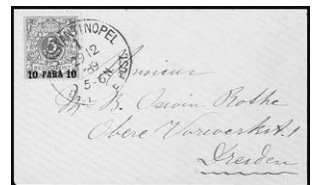 5
10 PARA 10
12
89
5-6N
Monsieur
B. Oswin Rothe
Obere Vorwerkst. 1
Dresden